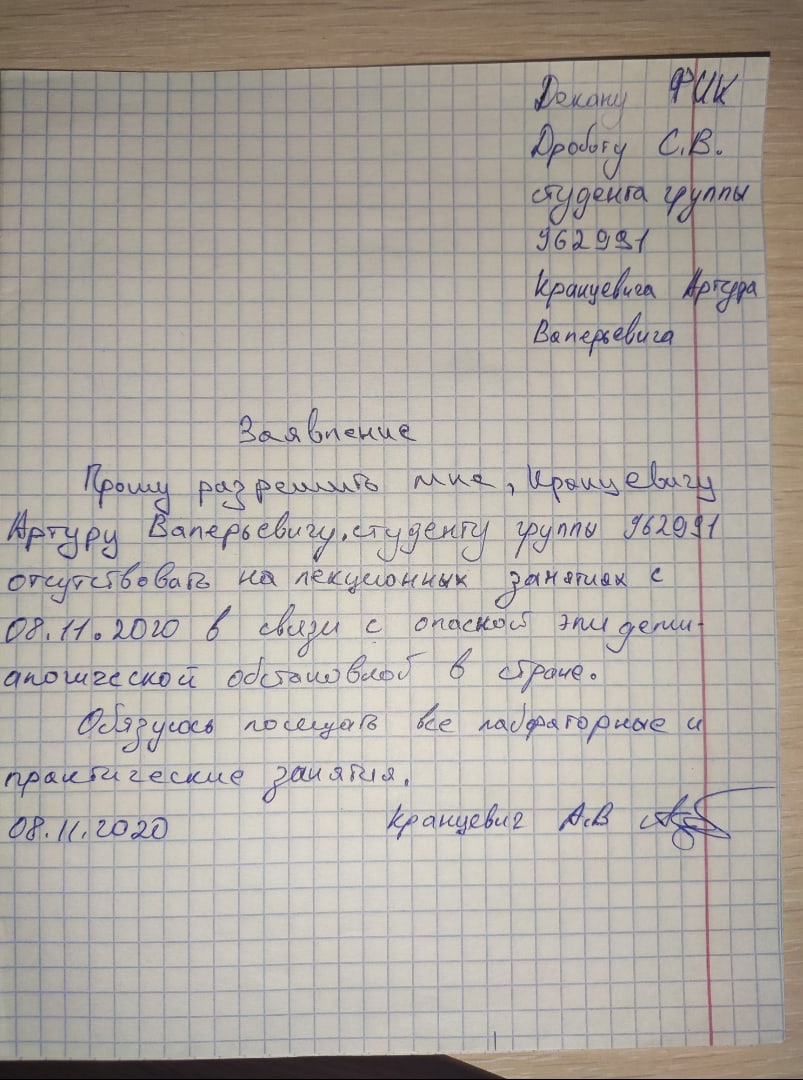 Декану ФИК
Дроботу С.В.
студента группы
962991
Кранцевича Артура
Валерьевича
Заявление
Прошу разрешить мне, Кранцевичу
Артуру Валерьевичу, студенту группы 962991
отсутствовать на лекционных занятиях с
08.11.2020 в связи с опасной эпидеми-
алогической обстановкой в стране.
Обязуюсь посещать все лабораторные и
практические занятия.
08.11.2020 Кранцевич А.В